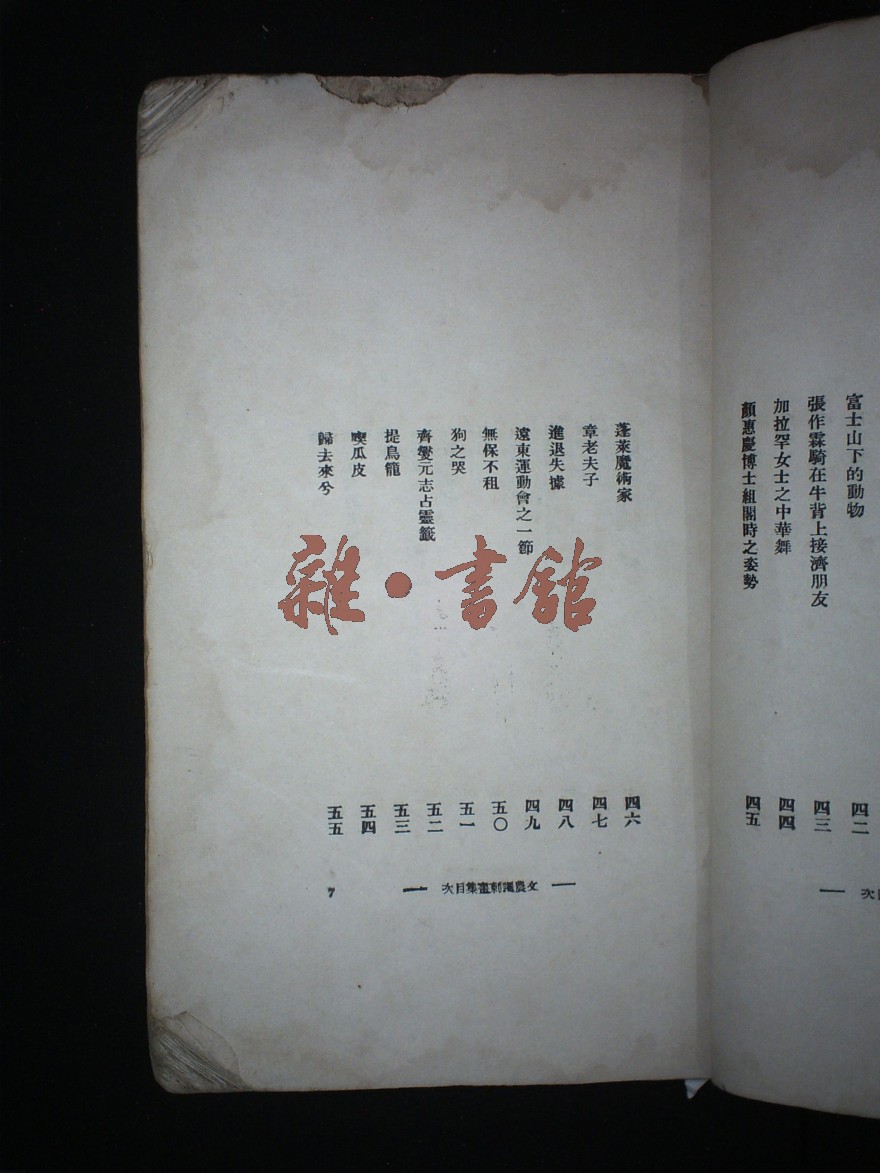 富士山下的動物 四二
張作霖騎在牛背上接濟朋友 四三
加拉罕女士之中華舞 四四
顏惠慶博士組閣時之姿勢 四五
蓬萊魔術家 四六
章老夫子 四七
進退失據 四八
遠東運動會之一節 四九
無保不租 五〇
狗之哭 五一
齊燮元志占靈籤 五二
提鳥籠 五三
喫瓜皮 五四
歸去來兮 五五
文農諷刺畫集目次
7
雜·書館